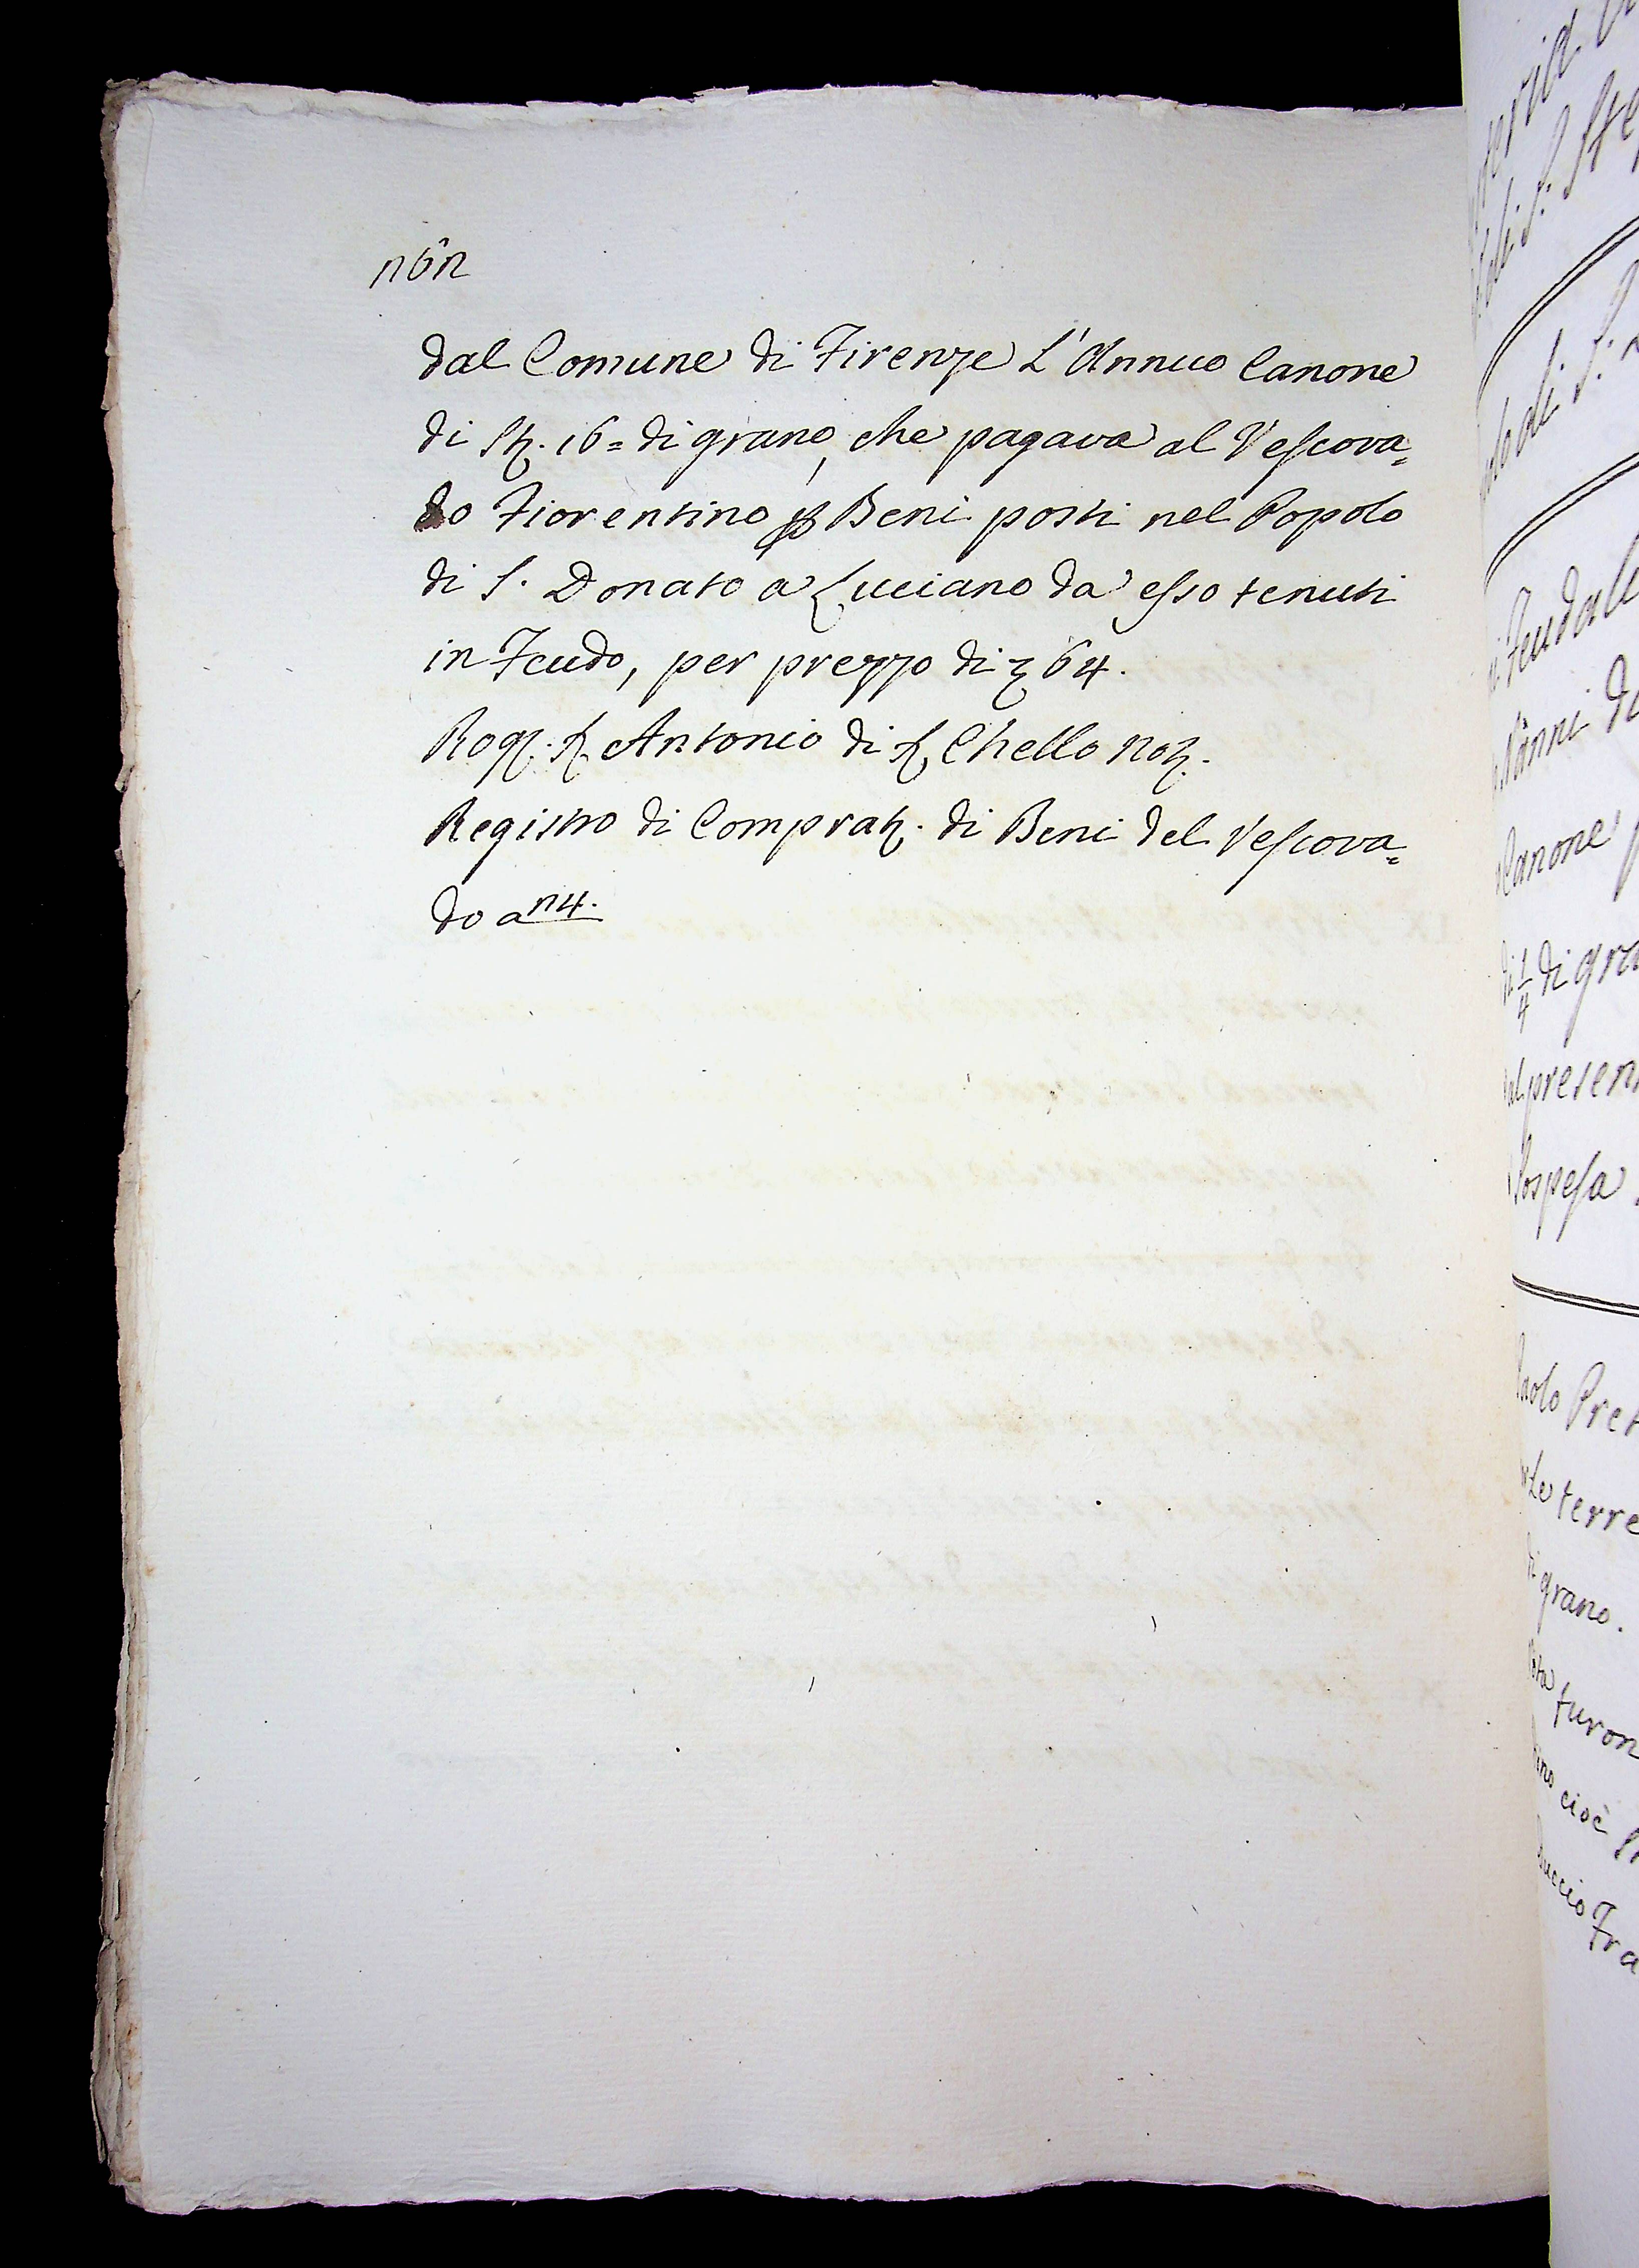 nôn
dal Comune di Firenze L'Annuo Canone
di St. 16= di grano, che pagava al Vescova=
do Fiorentino p Beni posti nel Popolo
di S. Donato a Lucciano da esso tenuti
in Feudo, per prezzo di 64.
Rog. S. Antonio di S. Chello Not.
Registro di Comprat. di Beni del Vescova=
do a n4.
Feudali
Nanni di
Canone
1/4 di gra
presen
Sospesa
Paolo Pret
Le terre
grano.
furon
cioè